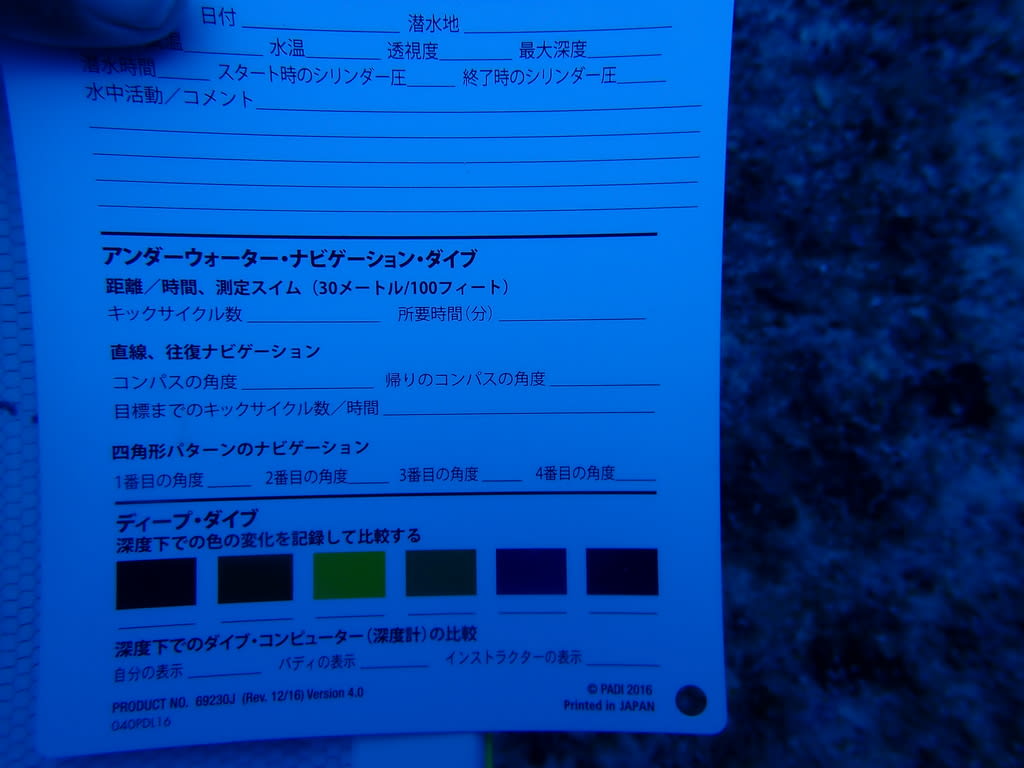 日付 潜水地
温 水温 透視度 最大深度
潜水時間 スタート時のシリンダー圧 終了時のシリンダー圧
水中活動／コメント
アンダーウォーター・ナビゲーション・ダイブ
距離／時間、測定スイム（30メートル/100フィート）
キックサイクル数 所要時間（分）
直線、往復ナビゲーション
コンパスの角度 帰りのコンパスの角度
目標までのキックサイクル数／時間
四角形パターンのナビゲーション
1番目の角度 2番目の角度 3番目の角度 4番目の角度
ディープ・ダイブ
深度下での色の変化を記録して比較する
深度下でのダイブ・コンピューター（深度計）の比較
自分の表示 バディの表示 インストラクターの表示
PRODUCT NO. 69230J (Rev. 12/16) Version 4.0
© PADI 2016
040PDL16
Printed in JAPAN